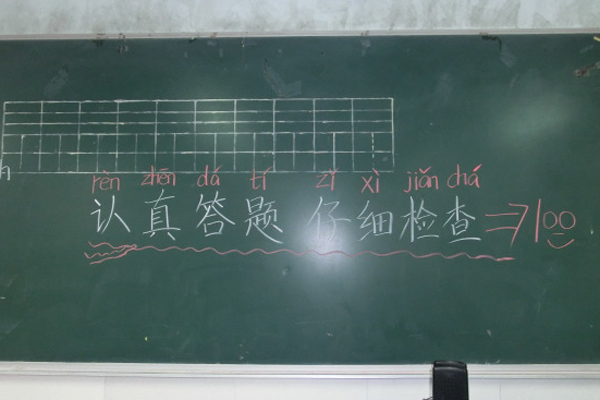 rèn zhēn dá tí zǐ xì jiǎn chá
认真答题 仔细检查⇒100